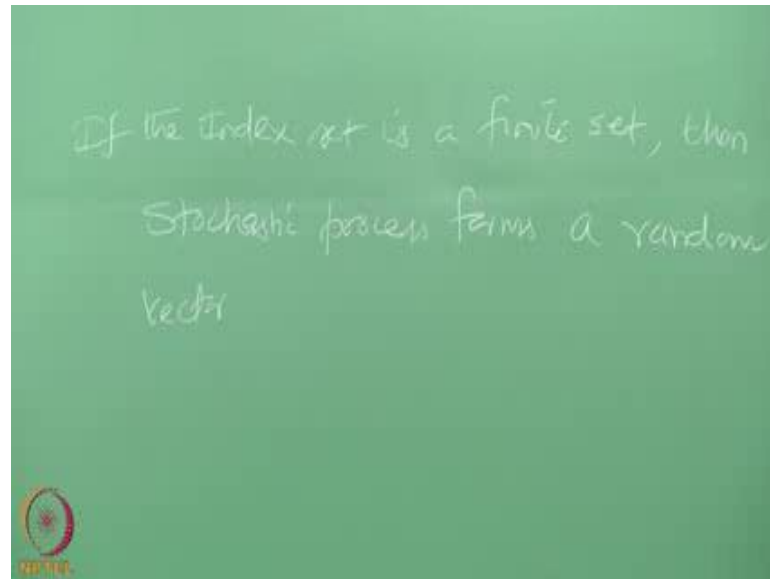 If the Index set is a finite set, then
Stochastic process forms a random
vector
NPTEL